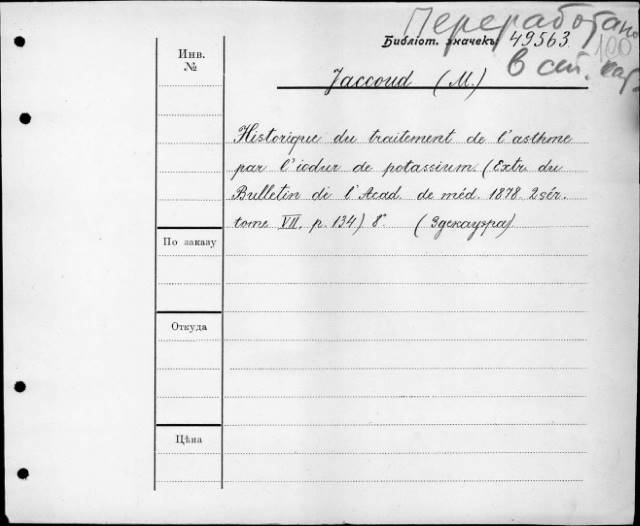 Переработано
Библіот. значекъ 49563
100
в сист. кат.
Инв.
№
Jaccoud (M.)
Historique du traitement de l'asthme
par l'iodur de potassium. (Extr. du
Bulletin di l'Acad. de méd. 1878. 2 sér.
tome VII. p. 134) 8° (Здекауэра)
По заказу
Откуда
Цѣна